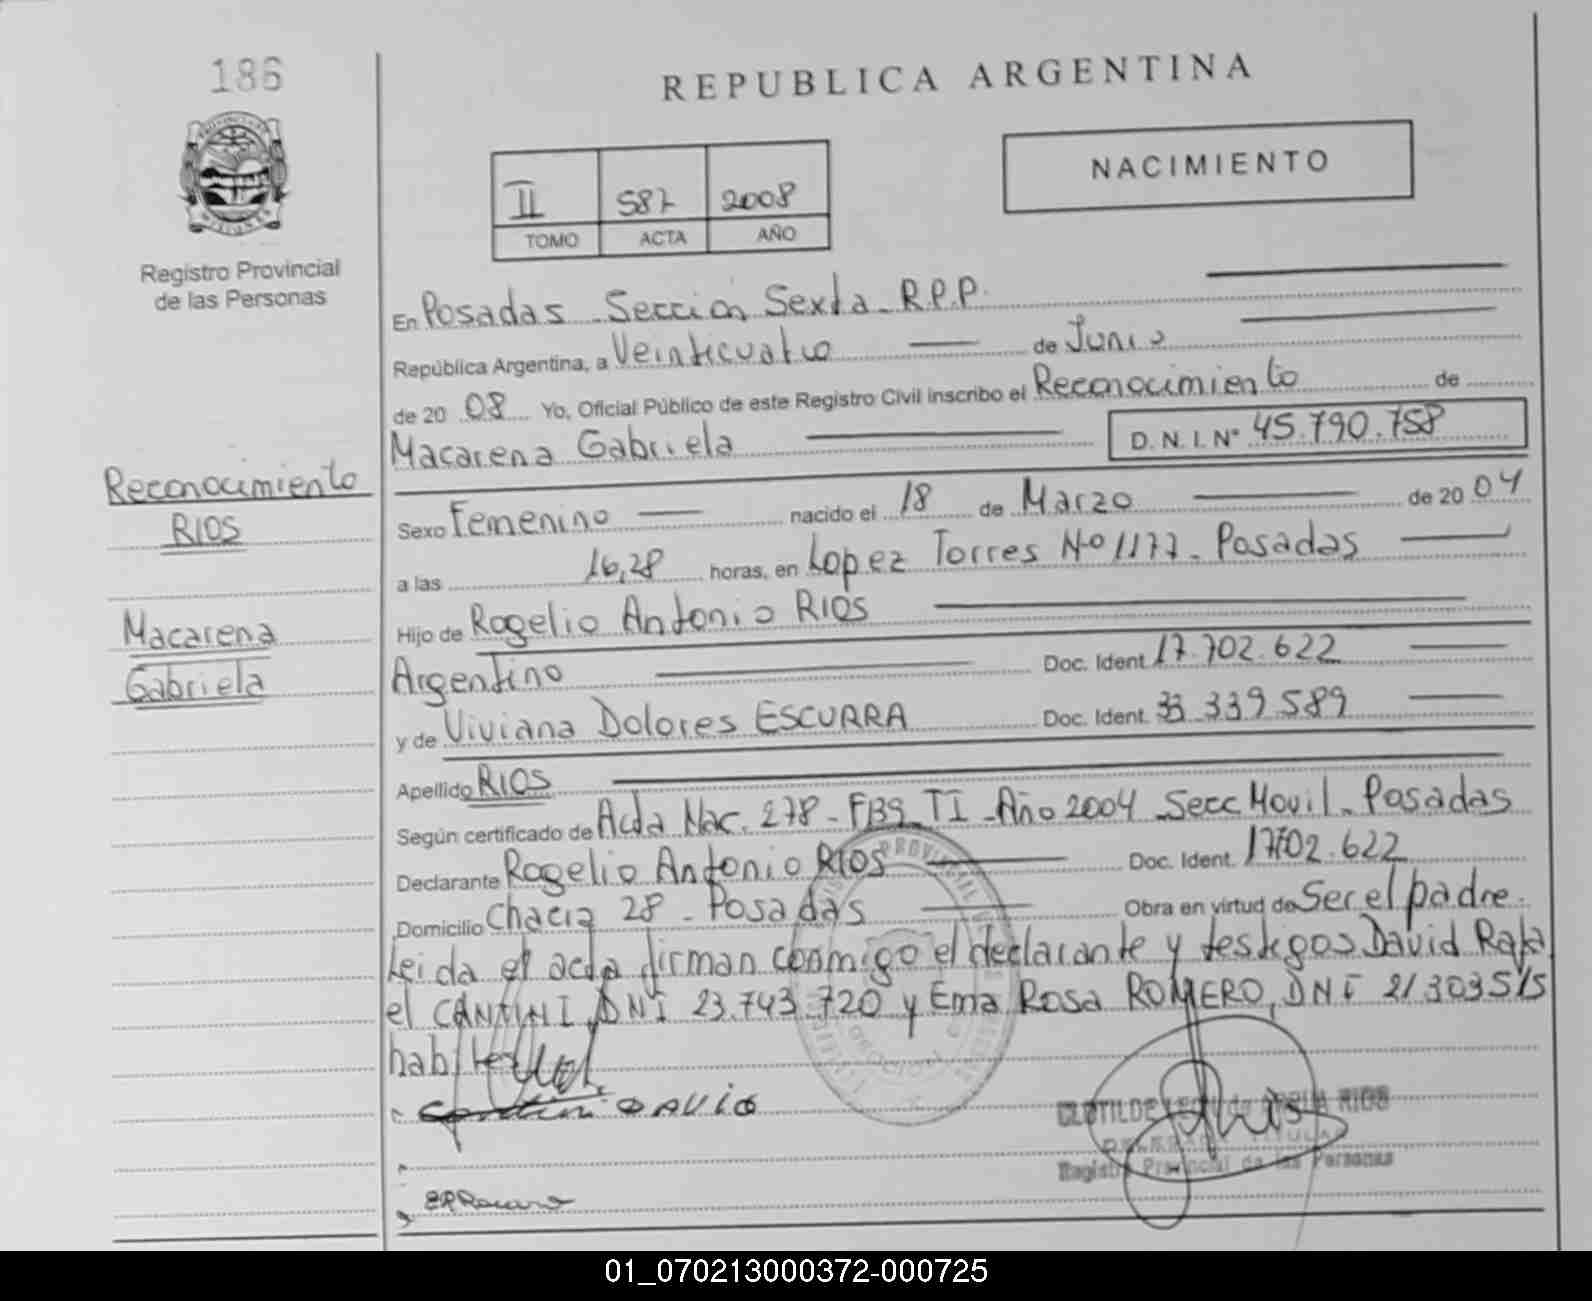 186
REPUBLICA ARGENTINA
NACIMIENTO
II 587 2008
TOMO ACTA AÑO
Registro Provincial
de las Personas
En Posadas - Sección Sexta - R.P.P.
República Argentina, a Veinticuatro de Junio
de 20 08 Yo, Oficial Público de este Registro Civil inscribo el Reconocimiento de
Macarena Gabriela D. N. I. Nº 45.790.758
Reconocimiento
RIOS
Macarena
Gabriela
Sexo Femenino nacido el 18 de Marzo de 20 04
a las 16,28 horas, en Lopez Torres Nº 1177 - Posadas
Hijo de Rogelio Antonio RIOS
Argentino Doc. Ident 17.702.622
y de Viviana Dolores ESCURRA Doc. Ident. 33 339 589
Apellido RIOS
Según certificado de Acta Nac. 278 - F139 - TI - Año 2004 - Secc Movil - Posadas
Declarante Rogelio Antonio RIOS Doc. Ident. 17702.622
Domicilio Chacra 28 - Posadas Obra en virtud de Ser el padre.
Leida el acta firman conmigo el declarante y testigos David Rafa
el CANTINI, DNI 23.743.720 y Ema Rosa ROMERO, DNI 21303515
habiles
DAVID
CLOTILDE RIOS
DELEGADA TITULAR
Registro Provincial de las Personas
01_070213000372-000725